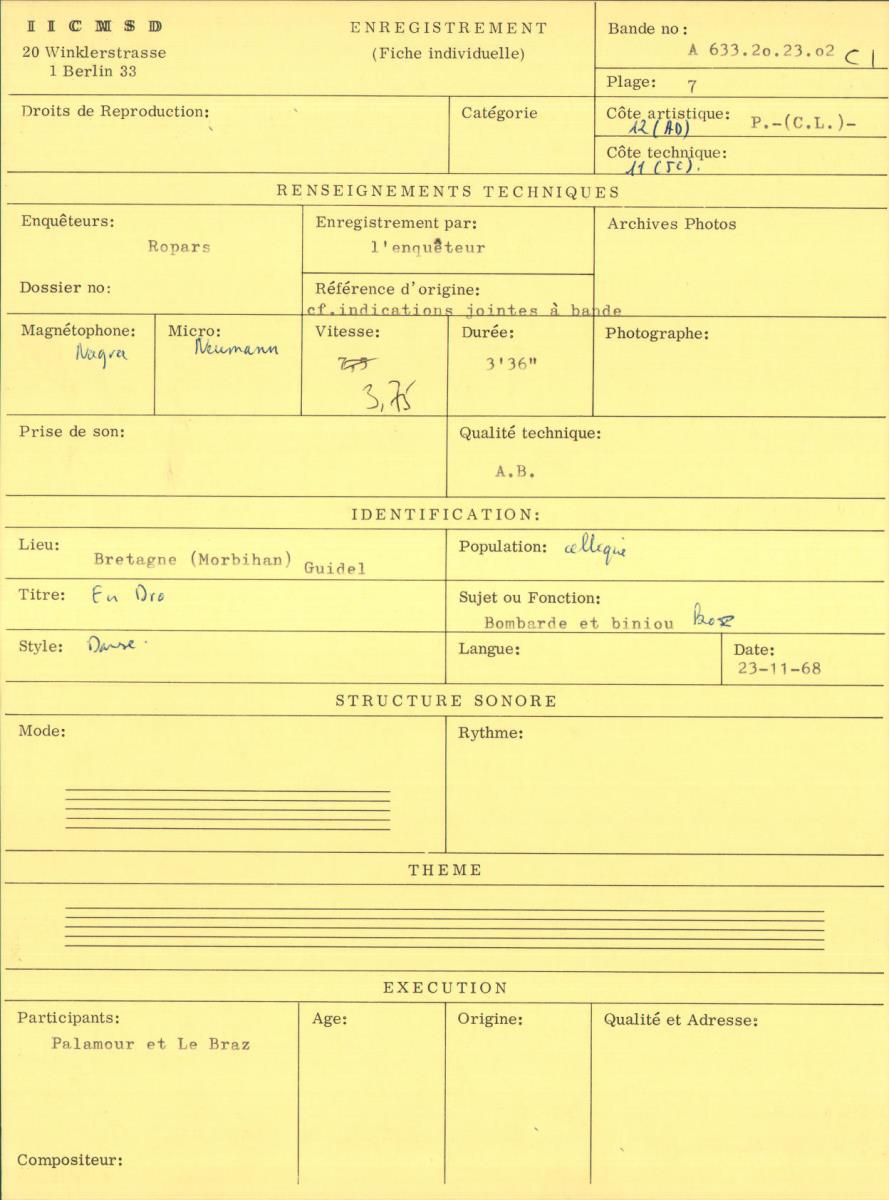 I I C M S D
20 Winklerstrasse
1 Berlin 33
ENREGISTREMENT
(Fiche individuelle)
Bande no :
A 633.2o.23.o2 C 1
Plage: 7
Droits de Reproduction:
Catégorie
Côte artistique:
12 (AD) P.-(C.L.)-
Côte technique:
11 (SC).
RENSEIGNEMENTS TECHNIQUES
Enquêteurs:
Ropars
Dossier no:
Enregistrement par:
l'enquêteur
Référence d'origine:
cf.indications jointes à bande
Archives Photos
Magnétophone:
Nagra
Micro:
Neumann
Vitesse:
7,5
3,75
Durée:
3'36"
Photographe:
Prise de son:
Qualité technique:
A.B.
IDENTIFICATION:
Lieu:
Bretagne (Morbihan) Guidel
Population: celtique
Titre: En Dro
Sujet ou Fonction:
Bombarde et biniou Koz
Style: Danse.
Langue:
Date:
23-11-68
STRUCTURE SONORE
Mode:
Rythme:
THEME
EXECUTION
Participants:
Palamour et Le Braz
Age:
Origine:
Qualité et Adresse:
Compositeur: